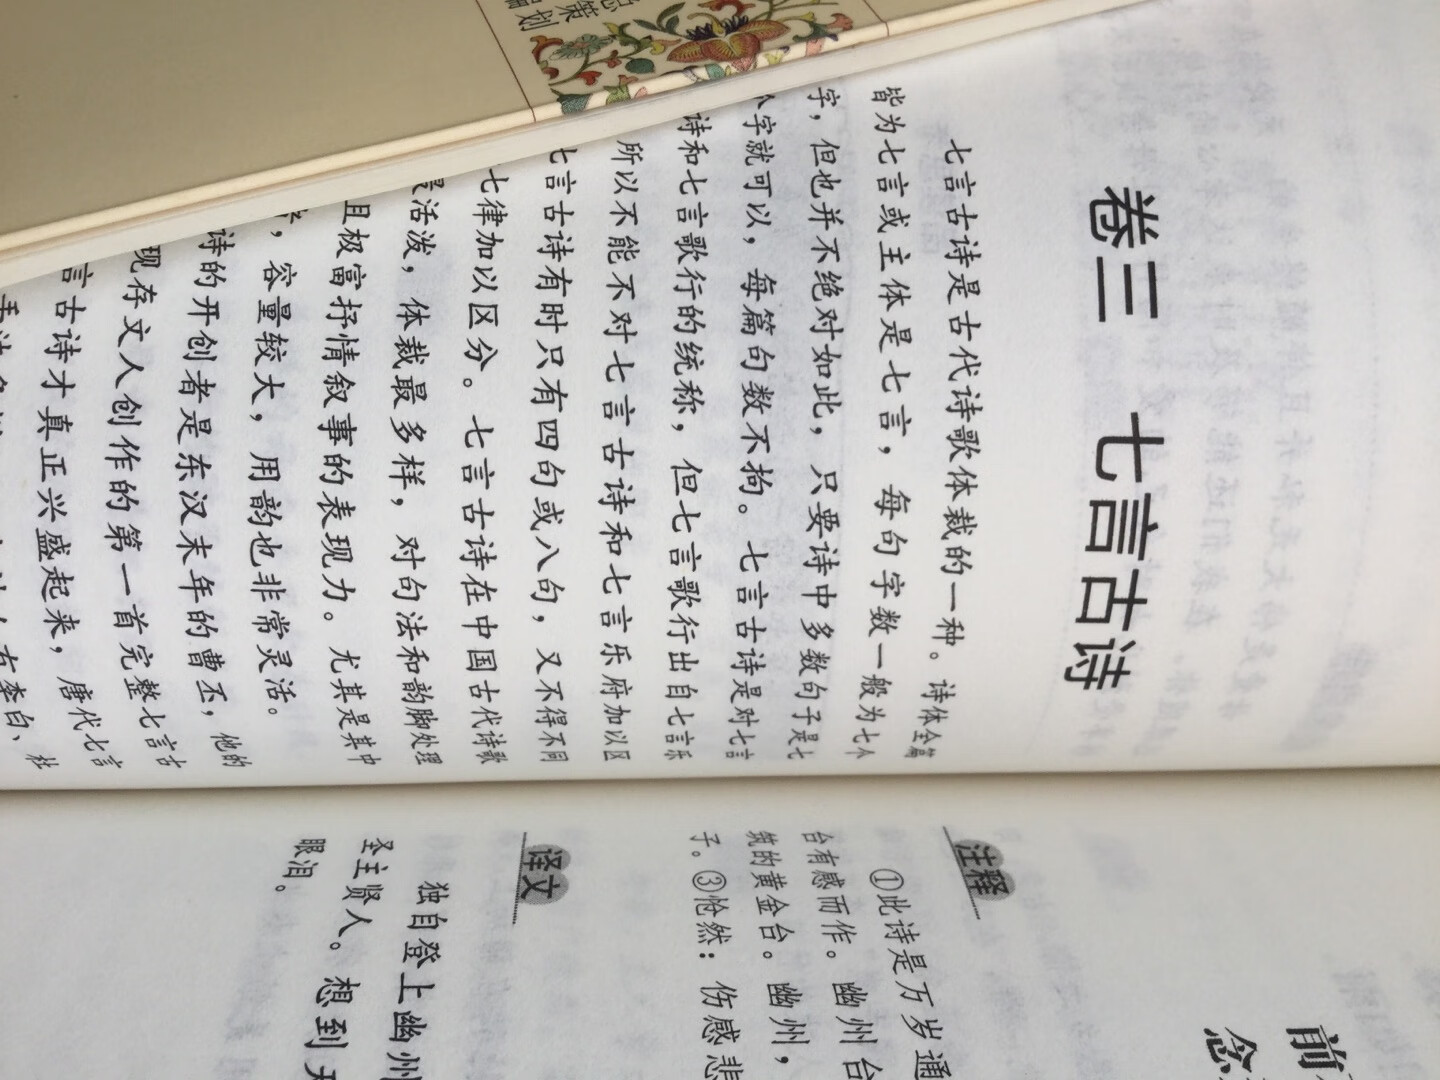 策划
卷三 七言古诗
七言古诗是古代诗歌体裁的一种。诗体全篇
皆为七言或主体是七言，每句字数一般为七个
字，但也并不绝对如此，只要诗中多数句子是七
个字就可以，每篇句数不拘。七言古诗是对七言
诗和七言歌行的统称，但七言歌行出自七言乐
所以不能不对七言古诗和七言乐府加以区
七言古诗有时只有四句或八句，又不得不同
七律加以区分。七言古诗在中国古代诗歌
活泼，体裁最多样，对句法和韵脚处理
且极富抒情叙事的表现力。尤其是其中
，容量较大，用韵也非常灵活。
诗的开创者是东汉末年的曹丕，他的
现存文人创作的第一首完整七言古
言古诗才真正兴盛起来，唐代七言
有李白、杜
前
念
注释
①此诗是万岁通
台有感而作。幽州台
筑的黄金台。幽州，
子。③怆然：伤感悲
译文
独自登上幽州
圣主贤人。想到天
眼泪。